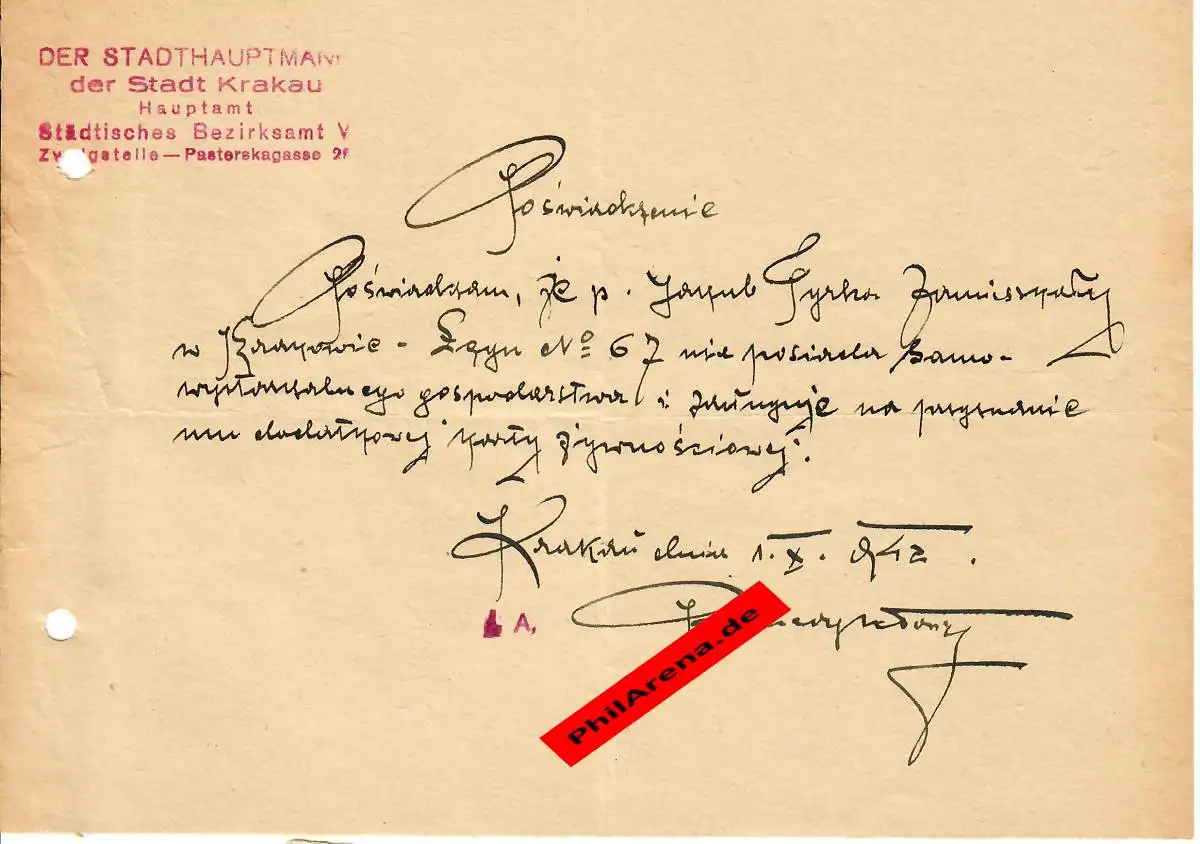 DER STADTHAUPTMANN
der Stadt Krakau
Hauptamt
Städtisches Bezirksamt V
Zweigstelle — Pasterskagasse 2
Poświadczenie
Poświadczam, że p. Jakub Tyrka zamieszkały
w Krakowie - Łęgu No 67 nie posiada samo-
wystarczalnego gospodarstwa i zasługuje na przyznanie
mu dodatkowej karty żywnościowej.
Krakau dnia 1. X. 942.
I. A.
PhilArena.de